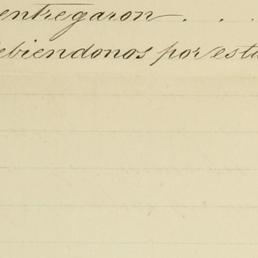 entregaron . . .
ebiendonos por esta